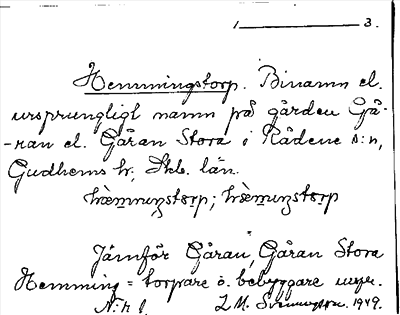 1 3.
Hemmingstorp. Binamn el.
ursprungligt namn på gården Gå-
-ran el. Gåran Stora i Rådene s:n,
Gudhems hr, Skb. län.
Jämför Gåran, Gåran Stora
Hemming = torpare o. bebyggare
N:r 1. L.M. Svenungsson. 1949.